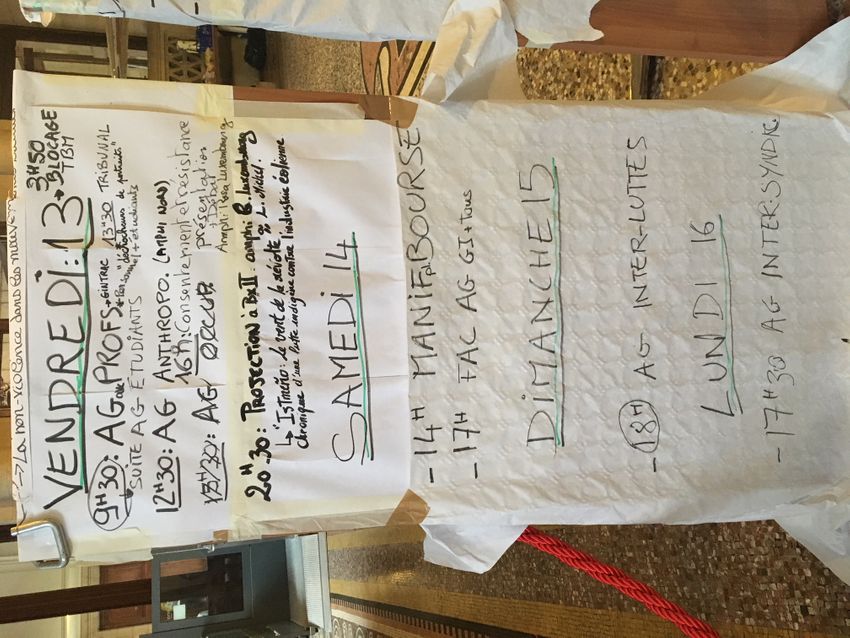 → La non-violence dans les mouvements
VENDREDI : 13
3H50 → BLOCAGE TBM
9H30 : AG de PROFS + GINTRIC
13H30 TRIBUNAL
" décrocheurs de portraits "
→ SUITE AG ÉTUDIANTS + étudiants
12H30 : AG ANTHROPO. (AMPHI NORD)
16H : Consentement et résistance
présentation + Débat
Amphi Rosa Luxembourg
13H30 : AG OCCUP.
20H30 : PROJECTION à BXII . amphi R. Luxembourg
↳ "Istmeño : le vent de la révolte" L. Michel.
chronique d'une lutte indigène contre l'industrie éolienne
SAMEDI 14
- 14H MANIF pl BOURSE
- 17H FAC AG GJ + tous
DIMANCHE 15
- 18H AG INTER-LUTTES
LUNDI 16
- 17H30 AG INTERSYNDIC